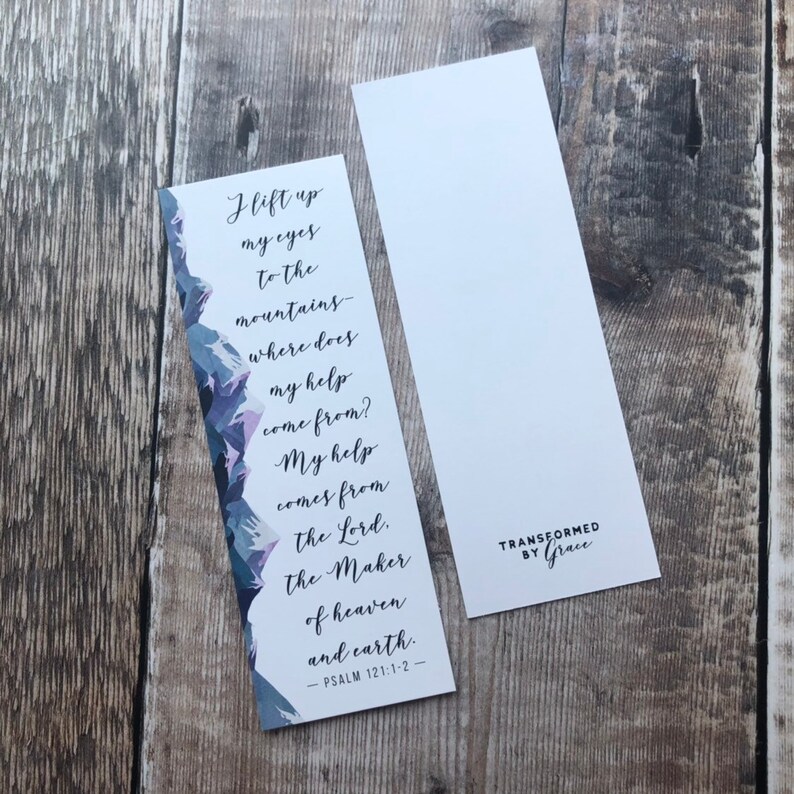 I lift up
my eyes
to the
mountains–
where does
my help
come from?
My help
comes from
the Lord,
the Maker
of heaven
and earth.
— PSALM 121:1-2 —
TRANSFORMED
BY Grace